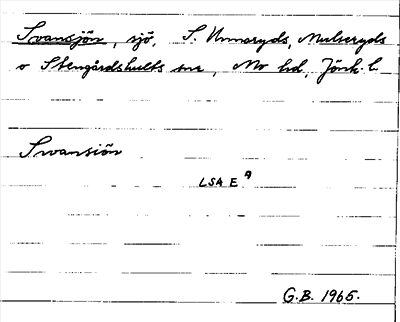 Svansjön, sjö, S. Unnaryds, Mulseryds
o Stengårdshults snr, Mo hd, Jönk. l.
Swansiön
LSA E 9
G.B. 1965.